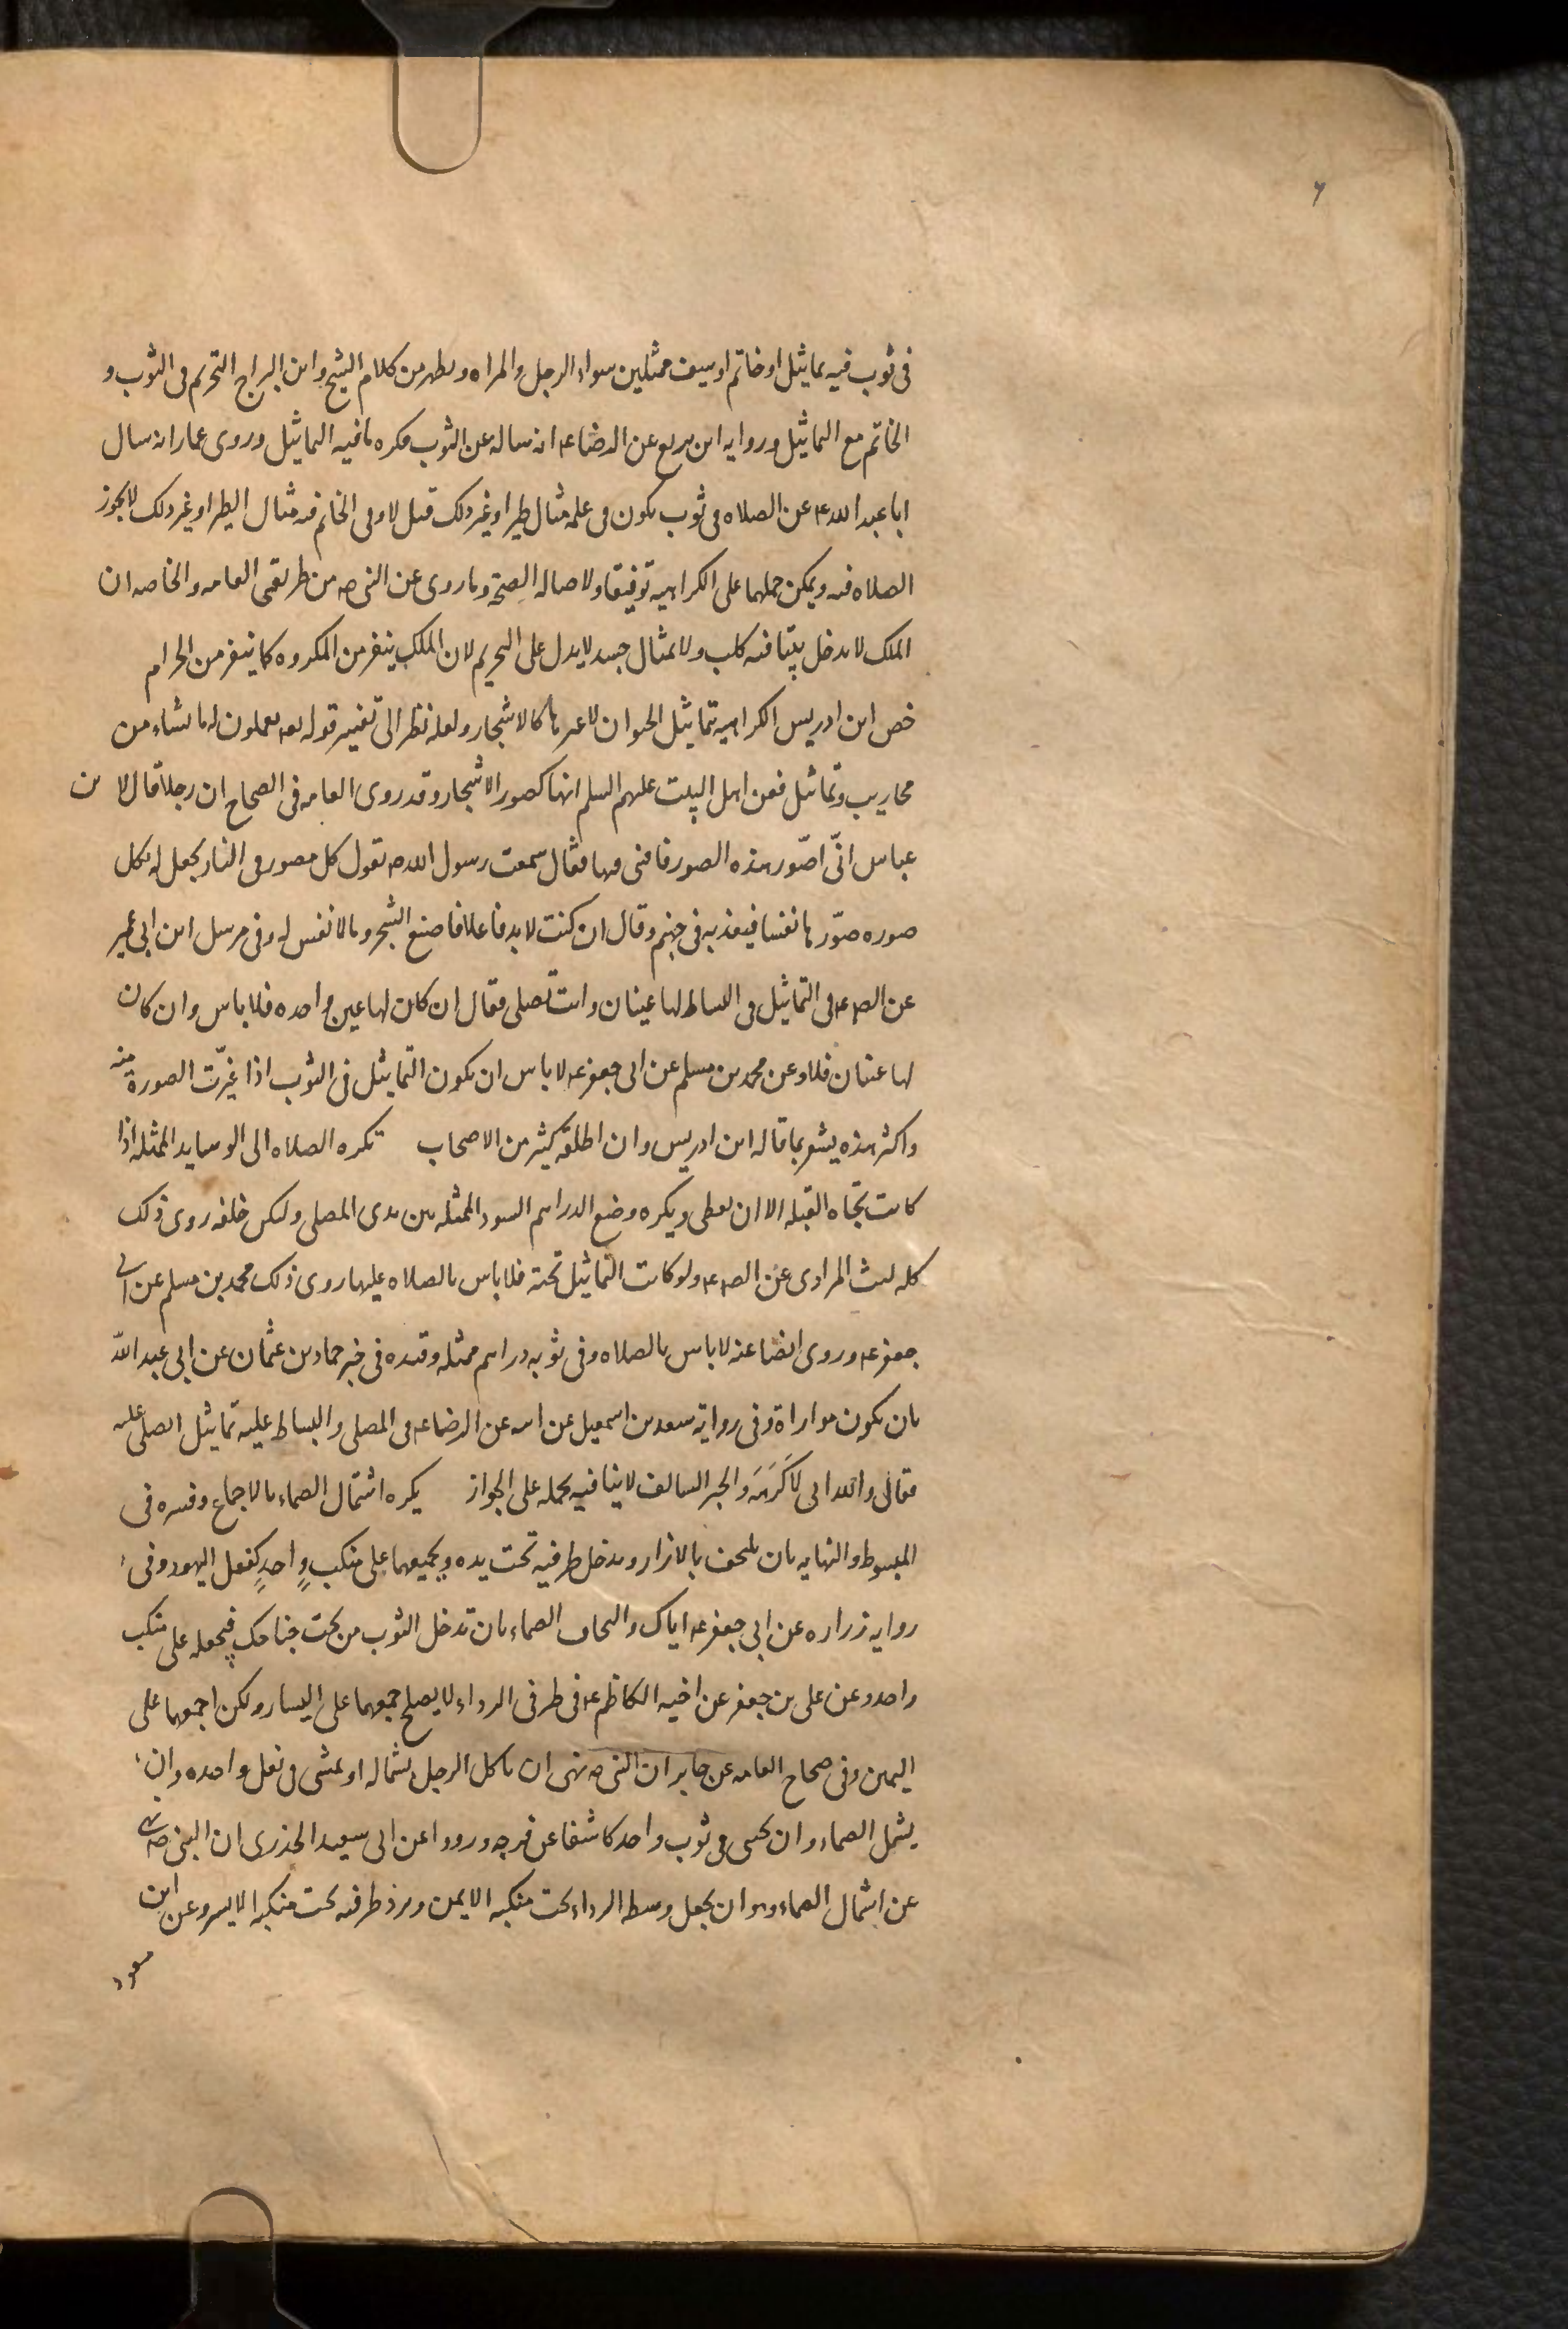 في ثوب فيه تماثيل او خاتم او سيف ممثلين سواء الرجل والمراه ويظهر من كلام الشيخ وابن البراج التحريم في الثوب و
الخاتم مع التماثيل وروايه ابن بزيع عن الرضا عه انه ساله عن الثوب فكره ما فيه التماثيل وروى عمار انه سال
ابا عبد الله عه عن الصلاه في ثوب يكون في علمه مثال طير او غير ذلك قيل لا وفي الخاتم فيه مثال الطير او غير ذلك لا تجوز
الصلاه فيه ويمكن حملهما على الكراهيه توفيقا ولاصاله الصحة وما روى عن النبي صه من طريقي العامه والخاصه ان
الملك لا يدخل بيتا فيه كلب ولا تمثال جسد لا يدل على التحريم لان الملك ينفر من المكروه كما ينفر من الحرام
خص ابن ادريس الكراهيه بتماثيل الحيوان لا غيرها كالاشجار ولعله نظر الى تفسير قوله تعه يعملون له ما يشاء من
محاريب وتماثيل فعن اهل البيت عليهم السلم انها كصور الاشجار وقد روى العامه في الصحاح ان رجلا قال لابن
عباس انّي اصّور هذه الصور فافتني فيها فقال سمعت رسول الله صه يقول كل مصور في النار يجعل له بكل
صوره صوّرها نفسا فيعذبه في جهنم وقال ان كنت لا بد فاعلا فاصنع الشجر وما لا نفس له وفي مرسل ابن ابي عمير
عن الصه عه في التماثيل في البساط لها عينان وانت تصلي فقال ان كان لها عين واحده فلا باس وان كان
لها عينان فلا وعن محمد بن مسلم عن ابي جعفر عه لا باس ان يكون التماثيل في الثوب اذا غيّرت الصورة منه
واكثر هذه يشعر بما قاله ابن ادريس وان اطلقه كثير من الاصحاب تكره الصلاه الى الوسايد الممثله اذا
كانت تجاه القبله الا ان يغطى ويكره وضع الدراهم السود الممثله بين يدي المصلي وليكن خلفه روى ذلك
كله ليث المرادي عن الصه عه ولو كانت التماثيل تحته فلا باس بالصلاه عليها روى ذلك محمد بن مسلم عن ابي
جعفر عه وروى ايضا عنه لا باس بالصلاه وفي ثوبه دراهم ممثله وقيده في خبر حماد بن عثمان عن ابي عبد الله
بان يكون مواراة وفي رواية سعد بن اسمعيل عن ابيه عن الرضا عه في المصلي والبساط عليه تماثيل ايصلي عليه
فقال والله اني لاكَرَهَه والخبر السالف لا ينافيه لحمله على الجواز يكره اشتمال الصماء بالاجماع وفسره في
المبسوط والنهايه بان يلتحف بالازار ويدخل طرفيه تحت يده ويجمعهما على منكبٍ واحدٍ كفعل اليهود وفي
روايه زراره عن ابي جعفر عه اياك والتحاف الصماء بان تدخل الثوب من تحت جناحك فتجعله على منكب
واحد وعن علي بن جعفر عن اخيه الكاظم عه في طرفي الرداء لا يصلح جمعهما على اليسار ولكن اجمعهما على
اليمين وفي صحاح العامه عن جابر ان النبي صه نهى ان ياكل الرجل بشماله او يمشي في نعل واحده وان
يشمل الصماء وان يحتبي في ثوب واحد كاشفا عن فرجه ورووا عن ابي سعيد الخذري ان النبي صه نهى
عن اشتمال الصماء وهو ان يجعل وسط الرداء تحت منكبه الايمن ويرد طرفيه تحت منكبه الايسر وعن ابن
مسعود